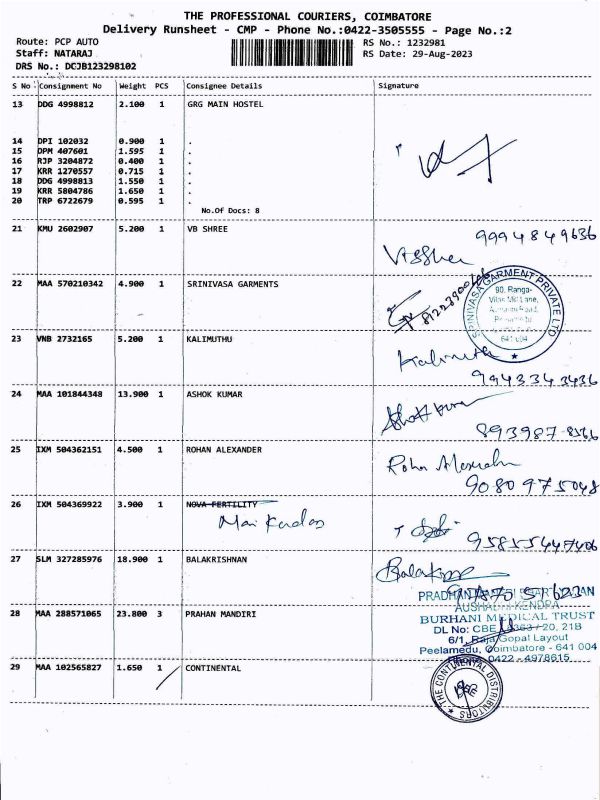 THE PROFESSIONAL COURIERS, COIMBATORE
Delivery Runsheet - CMP - Phone No.:0422-3505555 - Page No.:2
Route: PCP AUTO
Staff: NATARAJ
DRS No.: DCJB123298102
RS No.: 1232981
RS Date: 29-Aug-2023
S No Consignment No Weight PCS Consignee Details Signature
13 DDG 4998812 2.100 1 GRG MAIN HOSTEL
14 DPI 102032 0.900 1 .
15 DPM 407601 1.595 1 .
16 RJP 3204872 0.400 1 .
17 KRR 1270557 0.715 1 .
18 DDG 4998813 1.550 1 .
19 KRR 5804786 1.650 1 .
20 TRP 6722679 0.595 1 .
No.Of Docs: 8
21 KMU 2602907 5.200 1 VB SHREE
9994849636
22 MAA 570210342 4.900 1 SRINIVASA GARMENTS
SRINIVASA GARMENT PRIVATE LTD
90, Ranga-
641 004
23 VNB 2732165 5.200 1 KALIMUTHU
Kalimuthu
9943343436
24 MAA 101844348 13.900 1 ASHOK KUMAR
893987-8566
25 IXM 504362151 4.500 1 ROHAN ALEXANDER
9080975048
26 IXM 504369922 3.900 1 NOVA FERTILITY
27 SLM 327285976 18.900 1 BALAKRISHNAN
28 MAA 288571065 23.800 3 PRAHAN MANDIRI
AUSHADHI KENDRA
BURHANI MEDICAL TRUST
6/1, Raja Gopal Layout
Peelamedu, Coimbatore - 641 004
0422 - 4978615
29 MAA 102565827 1.650 1 CONTINENTAL
THE CONTINENTAL DISTRIBUTORS